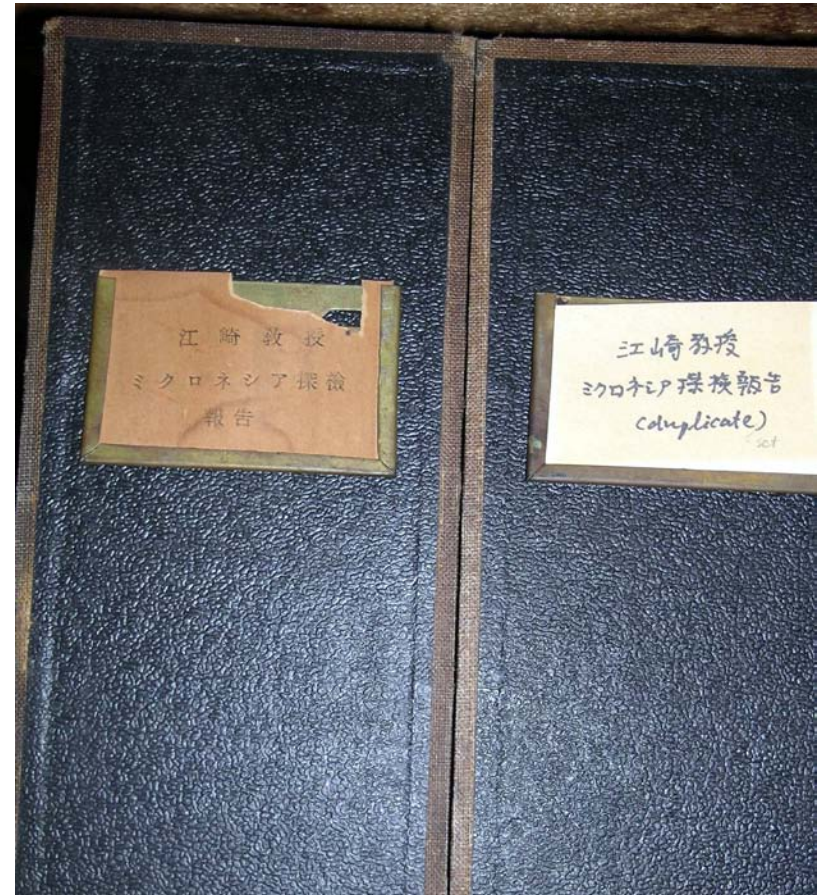 江崎教授
ミクロネシア探檢
報告
江崎教授
ミクロネシア探検報告
(duplicate)
set